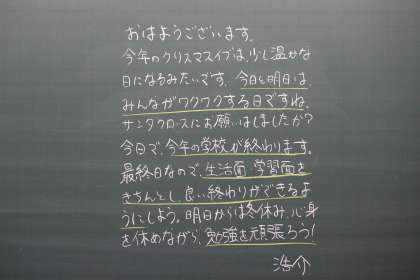 おはようございます。
今年のクリスマスイブは、少し温かな
日になるみたいです。今日と明日は、
みんながワクワクする日ですね。
サンタクロースにお願いはしましたか？
今日で、今年の学校が終わります。
最終日なので、生活面、学習面を
きちんとし、良い終わりができるよ
うにしよう。明日からは冬休み。心身
を休めながら、勉強を頑張ろう！
浩介